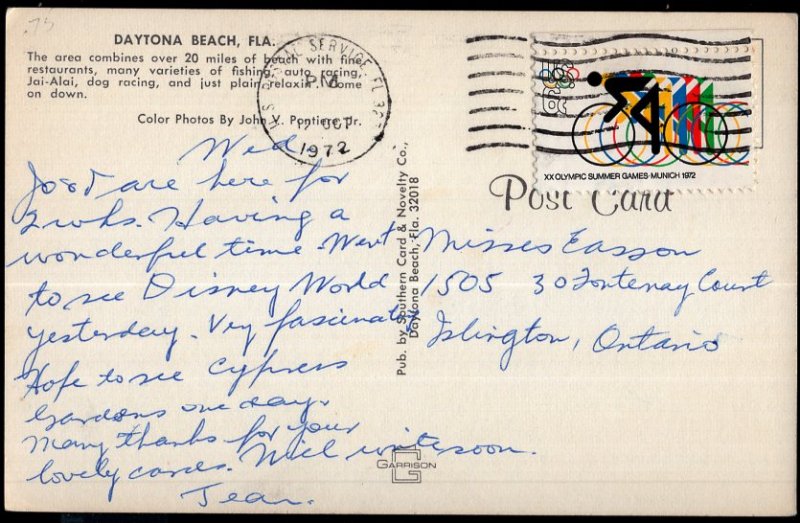 .75
DAYTONA BEACH, FLA.
The area combines over 20 miles of beach with fine
restaurants, many varieties of fishing, auto racing,
Jai-Alai, dog racing, and just plain relaxin'. Come
on down.
Color Photos By John V. Pontiere, Jr.
U.S. POSTAL SERVICE, FL
PM
OCT
1972
US
6c
XX OLYMPIC SUMMER GAMES · MUNICH 1972
Post Card
Wed
are here for
2 wks. Having a
wonderful time. Went
to see Disney World
yesterday. Very fascinating
Hope to see Cypress
Gardens one day.
Many thanks for your
lovely cards. Will write soon.
Jean.
Pub. by Southern Card & Novelty Co.,
Daytona Beach, Fla. 32018
Misses Easson
1505 30 Fontenay Court
Islington, Ontario
G
GARRISON